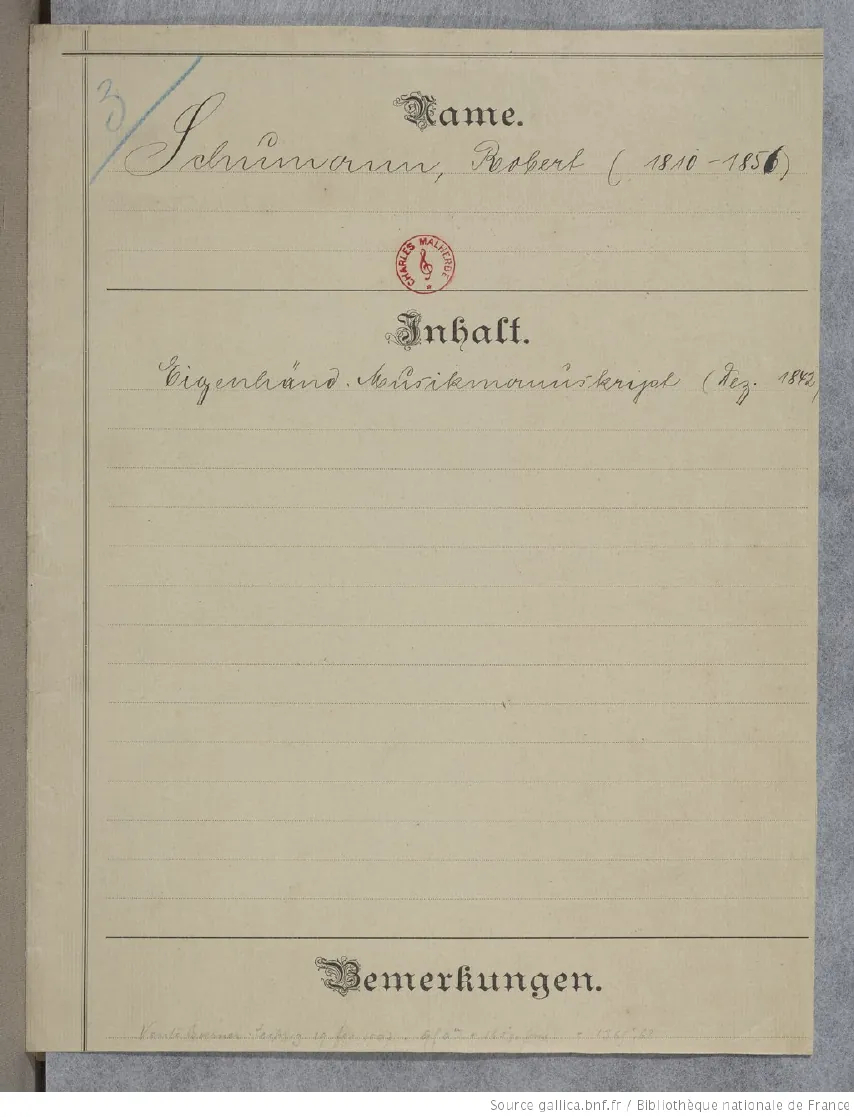 3/
Name.
Schumann, Robert (1810-1856)
CHARLES MALHERBE
Inhalt.
Eigenhänd. Musikmanuskript (Dez. 1842)
Bemerkungen.
Vente
Source gallica.bnf.fr / Bibliothèque nationale de France